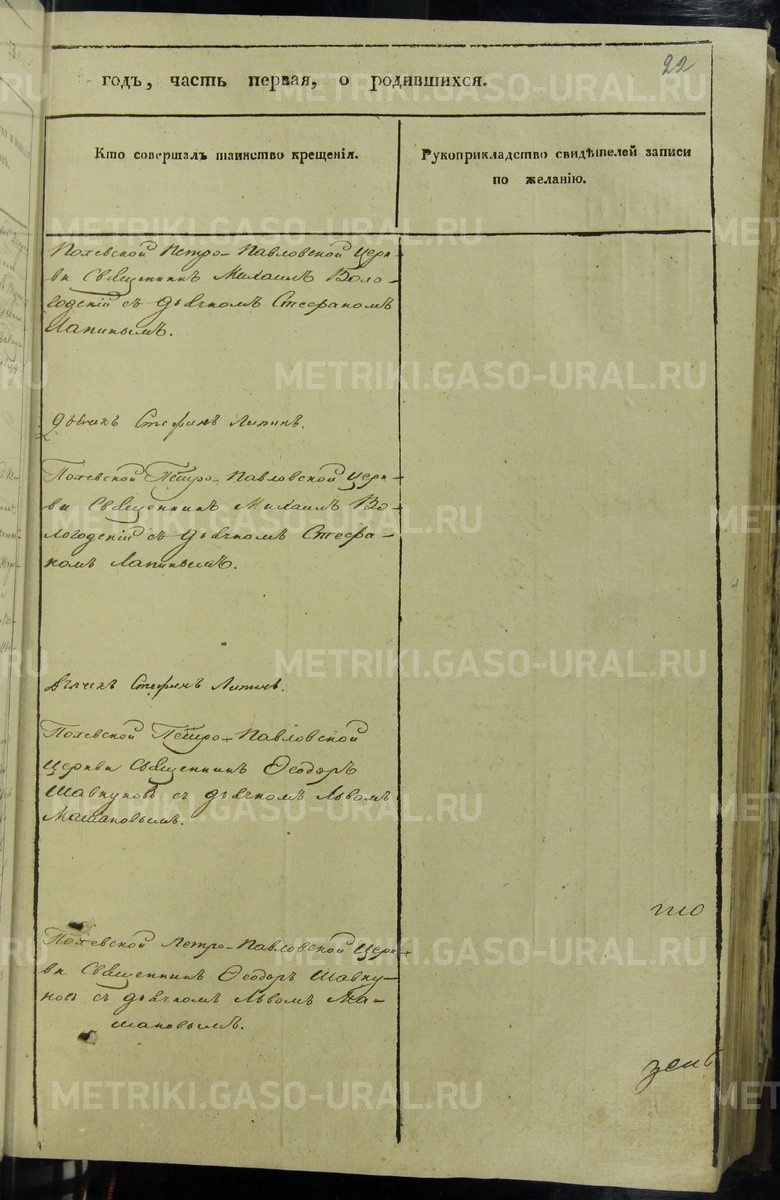 22
годъ, часть первая, о родившихся.
Кто совершалъ таинство крещенія.
Рукоприкладство свидѣтелей записи
по желанію.
Полевской Петро-Павловской Церк-
ви Священникъ Михаилъ Воло-
годскій съ дьячкомъ Стефаномъ
Лапинымъ.
Дьячекъ Стефанъ Лапинъ.
Полевской Петро-Павловской Церк-
ви Священникъ Михаилъ Во-
логодскій съ дьячкомъ Стефа-
номъ Лапинымъ.
Дьячекъ Стефанъ Лапинъ.
Полевской Петро-Павловской
Церкви Священникъ Ѳеодоръ
Шавкуновъ съ дьячкомъ Львомъ
Машановымъ.
Полевской Петро-Павловской Церк-
ви Священникъ Ѳеодоръ Шавку-
новъ съ дьячкомъ Львомъ Ма-
шановымъ.
METRIKI.GASO-URAL.RU